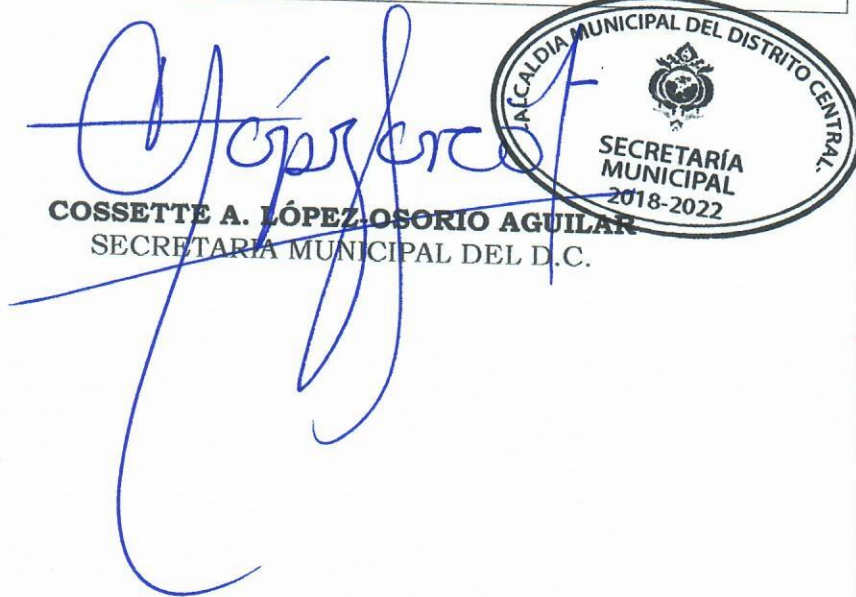 ALCALDIA MUNICIPAL DEL DISTRITO CENTRAL.
SECRETARÍA
MUNICIPAL
2018-2022
COSSETTE A. LÓPEZ-OSORIO AGUILAR
SECRETARIA MUNICIPAL DEL D.C.